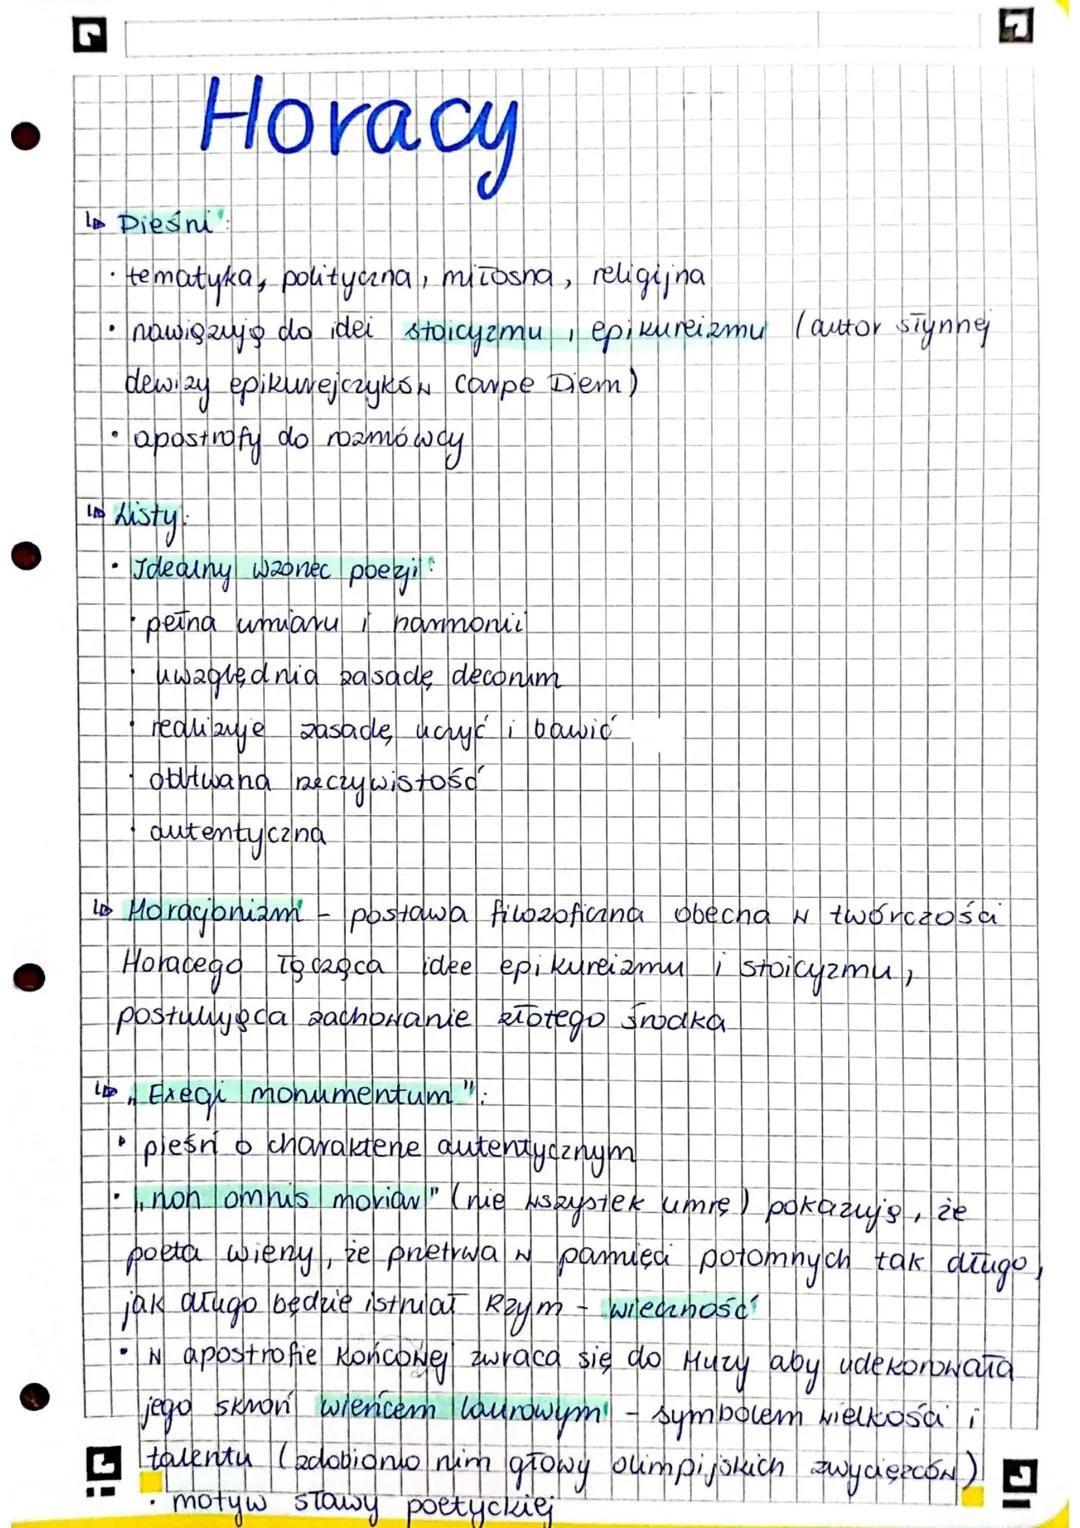 Horacy
Pieśni:
· tematyka, polityczna, miłosna, religijna
· nawiązują do idei stoicyzmu, epikureizmu (autor słynnej
dewizy epikurejczyków Carpe Diem)
· apostrofy do rozmówcy
Listy:
· Idealny wzorzec poezji:
· pełna umiaru i harmonii
· uwzględnia zasadę decorum
· realizuje zasadę uczyć i bawić
· rzeczywistość
· autentyczna
Horacjonizm - postawa filozoficzna obecna w twórczości
Horacego łącząca idee epikureizmu i stoicyzmu,
postulująca zachowanie złotego środka
„Exegi monumentum":
· pieśń o charakterze autentycznym
· „non omnis moriar" (nie wszystek umrę) pokazują, że
poeta wierzy, że przetrwa w pamięci potomnych tak długo,
jak długo będzie istniał Rzym - wieczność
· w apostrofie końcowej zwraca się do Muzy aby udekorowała
jego skroń wieńcem laurowym - symbolem wielkości i
talentu (zdobiono nim głowy olimpijskich zwycięzców)
· motyw sławy poetyckiej